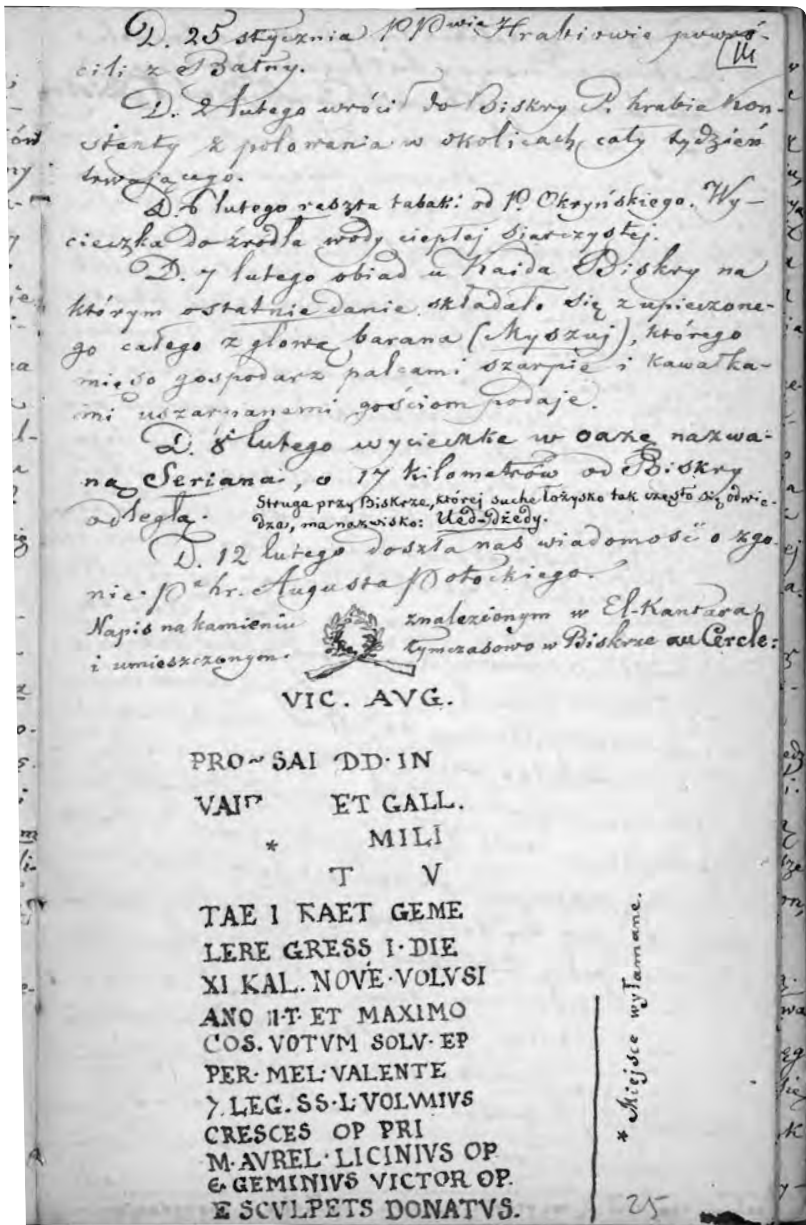 D. 25 stycznia PP^wie Hrabiowie powró-
cili z Batny.
111
D. 2 lutego wrócił do Biskry P. hrabia Kon-
stanty z polowania w okolicach, cały tydzień
trwającego.
D. 6 lutego reszta tabaki od P. Okryńskiego. Wy-
cieczka do źródła wody ciepłej siarczystej.
D. 7 lutego obiad u Kaida Biskry na
którym ostatnie danie składało się z upieczone-
go całego z głową barana (Myszuj), którego
mięso gospodarz palcami szarpie i kawałka-
mi uszarpanemi gościom podaje.
D. 8 lutego wycieczka w oazę nazwa-
ną Seriana, o 17 kilometrów od Biskry
odległą. Struga przy Biskrze, której suche łożysko tak często się odwie-
dza, ma nazwisko: Uëd-Dżedy.
D. 12 lutego doszła nas wiadomość o zgo-
nie P^a hr. Augusta Potockiego.
Napis na kamieniu znalezionym w El-Kantara,
i umieszczonym tymczasowo w Biskrze au Cercle:
VIC. AVG.
PRO~SAI DD·IN
VAI ET GALL.
* MILI
T V
TAE I KAET GEME
LERE GRESS I·DIE
XI KAL. NOVE·VOLVSI
ANO II·T· ET MAXIMO
COS. VOTVM SOLV·EP
PER·MEL·VALENTE
7. LEG. SS·L·VOLVMIVS
CRESCES OP PRI
M·AVREL·LICINIVS OP
E·GEMINIVS VICTOR OP.
E SCVLPETS DONATVS.
* Miejsce wyłamane.
25